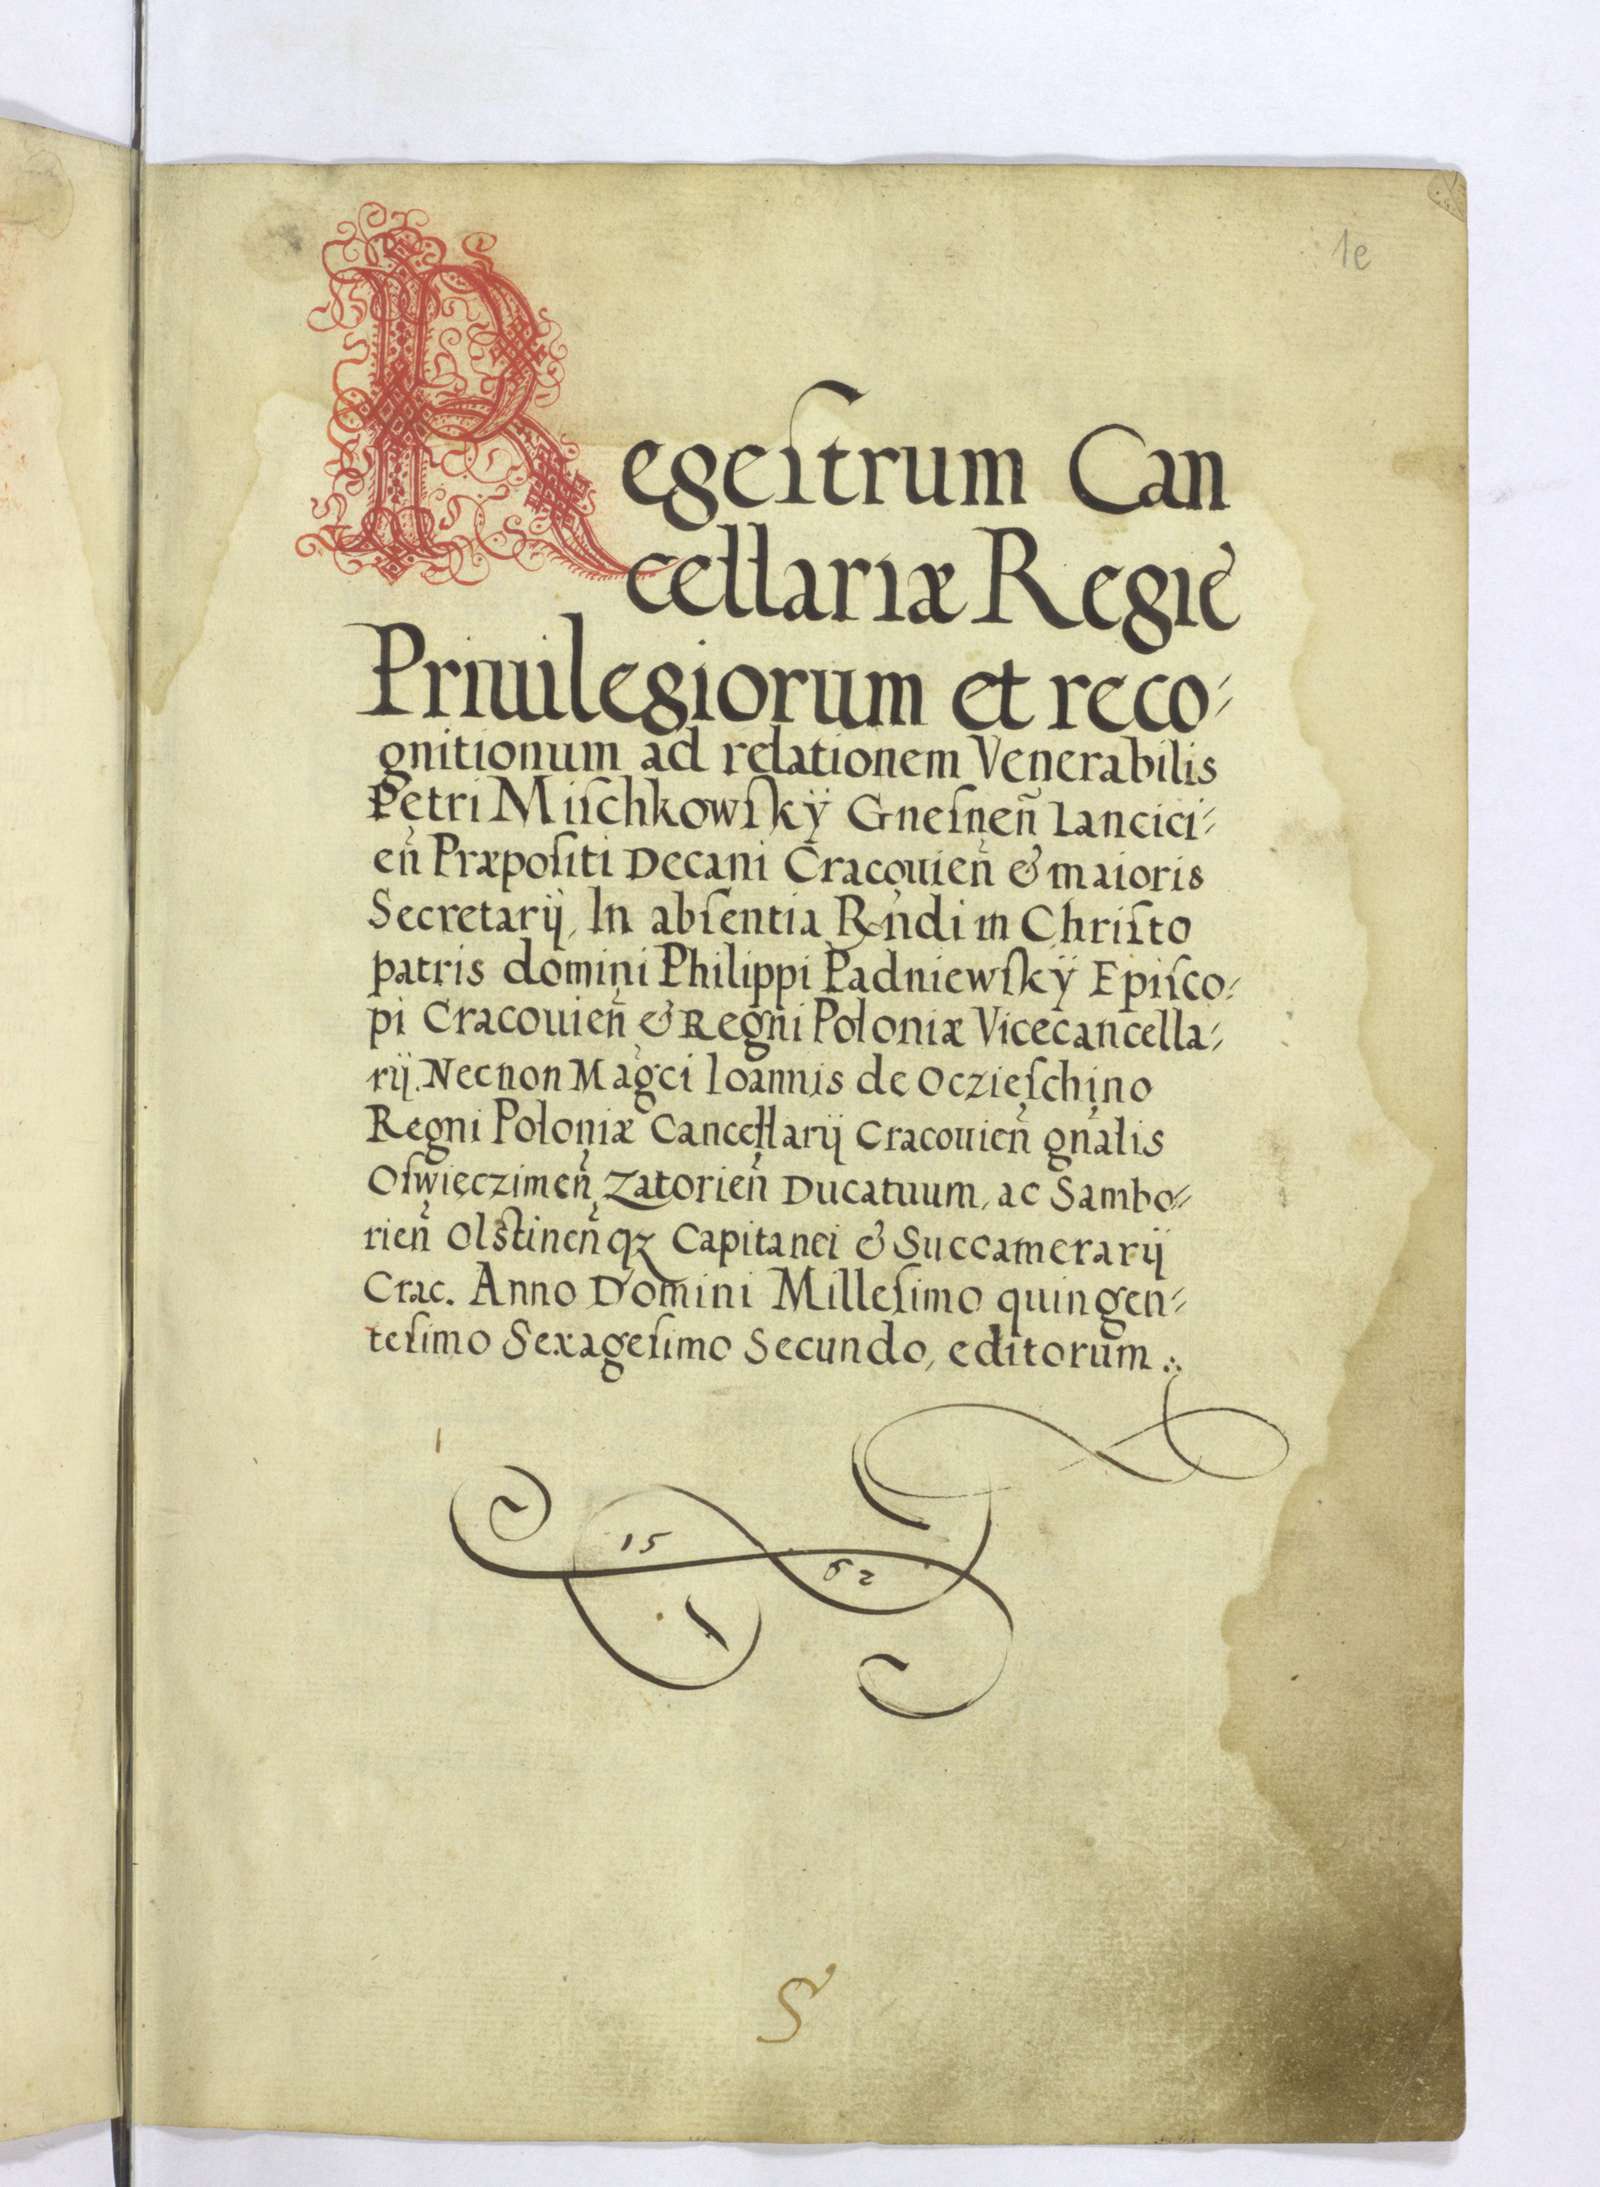 1e
Regeſtrum Can
cellariæ Regię
Priuilegiorum et reco-
gnitionum ad relationem Venerabilis
Petri Miſchkowſkÿ Gneſneñ Lancici-
eñ Præpoſiti Decani Cracouieñ & maioris
Secretarij, In abſentia Rñdi in Chriſto
patris domini Philippi Padniewſkÿ Epiſco-
pi Cracouieñ & Regni Poloniæ Vicecancella-
rij. Necnon Magci Ioannis de Oczieſchino
Regni Poloniæ Cancellarij Cracouieñ gnalis
Oſwięczimeñ Zatorieñ Ducatuum, ac Sambo-
rieñ Olstineñqꝫ Capitanei & Succamerarij
Crac. Anno Domini Milleſimo quingen-
teſimo Sexageſimo Secundo, editorum ∴
15 62
S